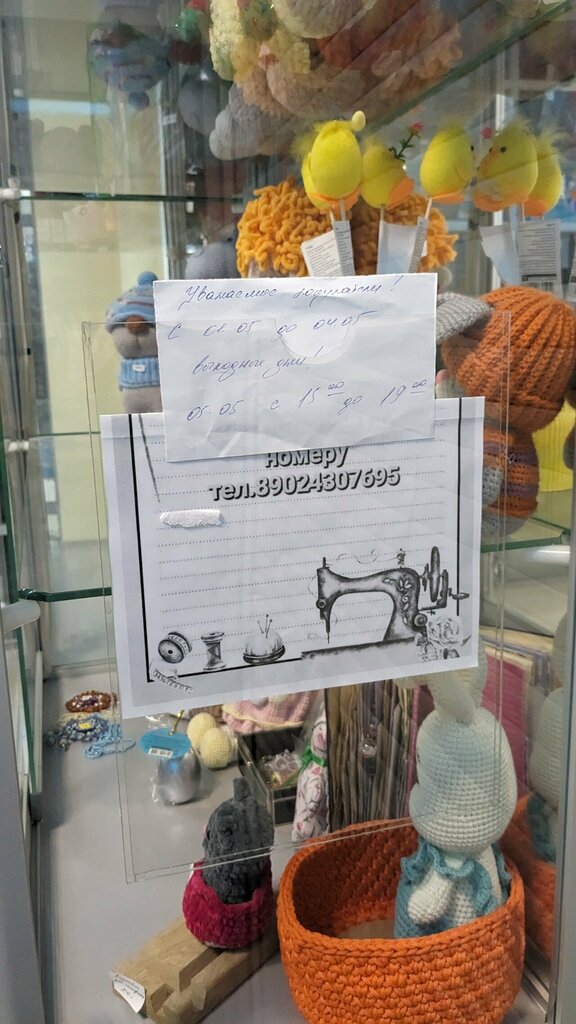 Уважаемые покупатели!
с 01.05 до 04.05
выходные дни!
05.05 с 15 00 до 19 00
номеру
тел.89024307695